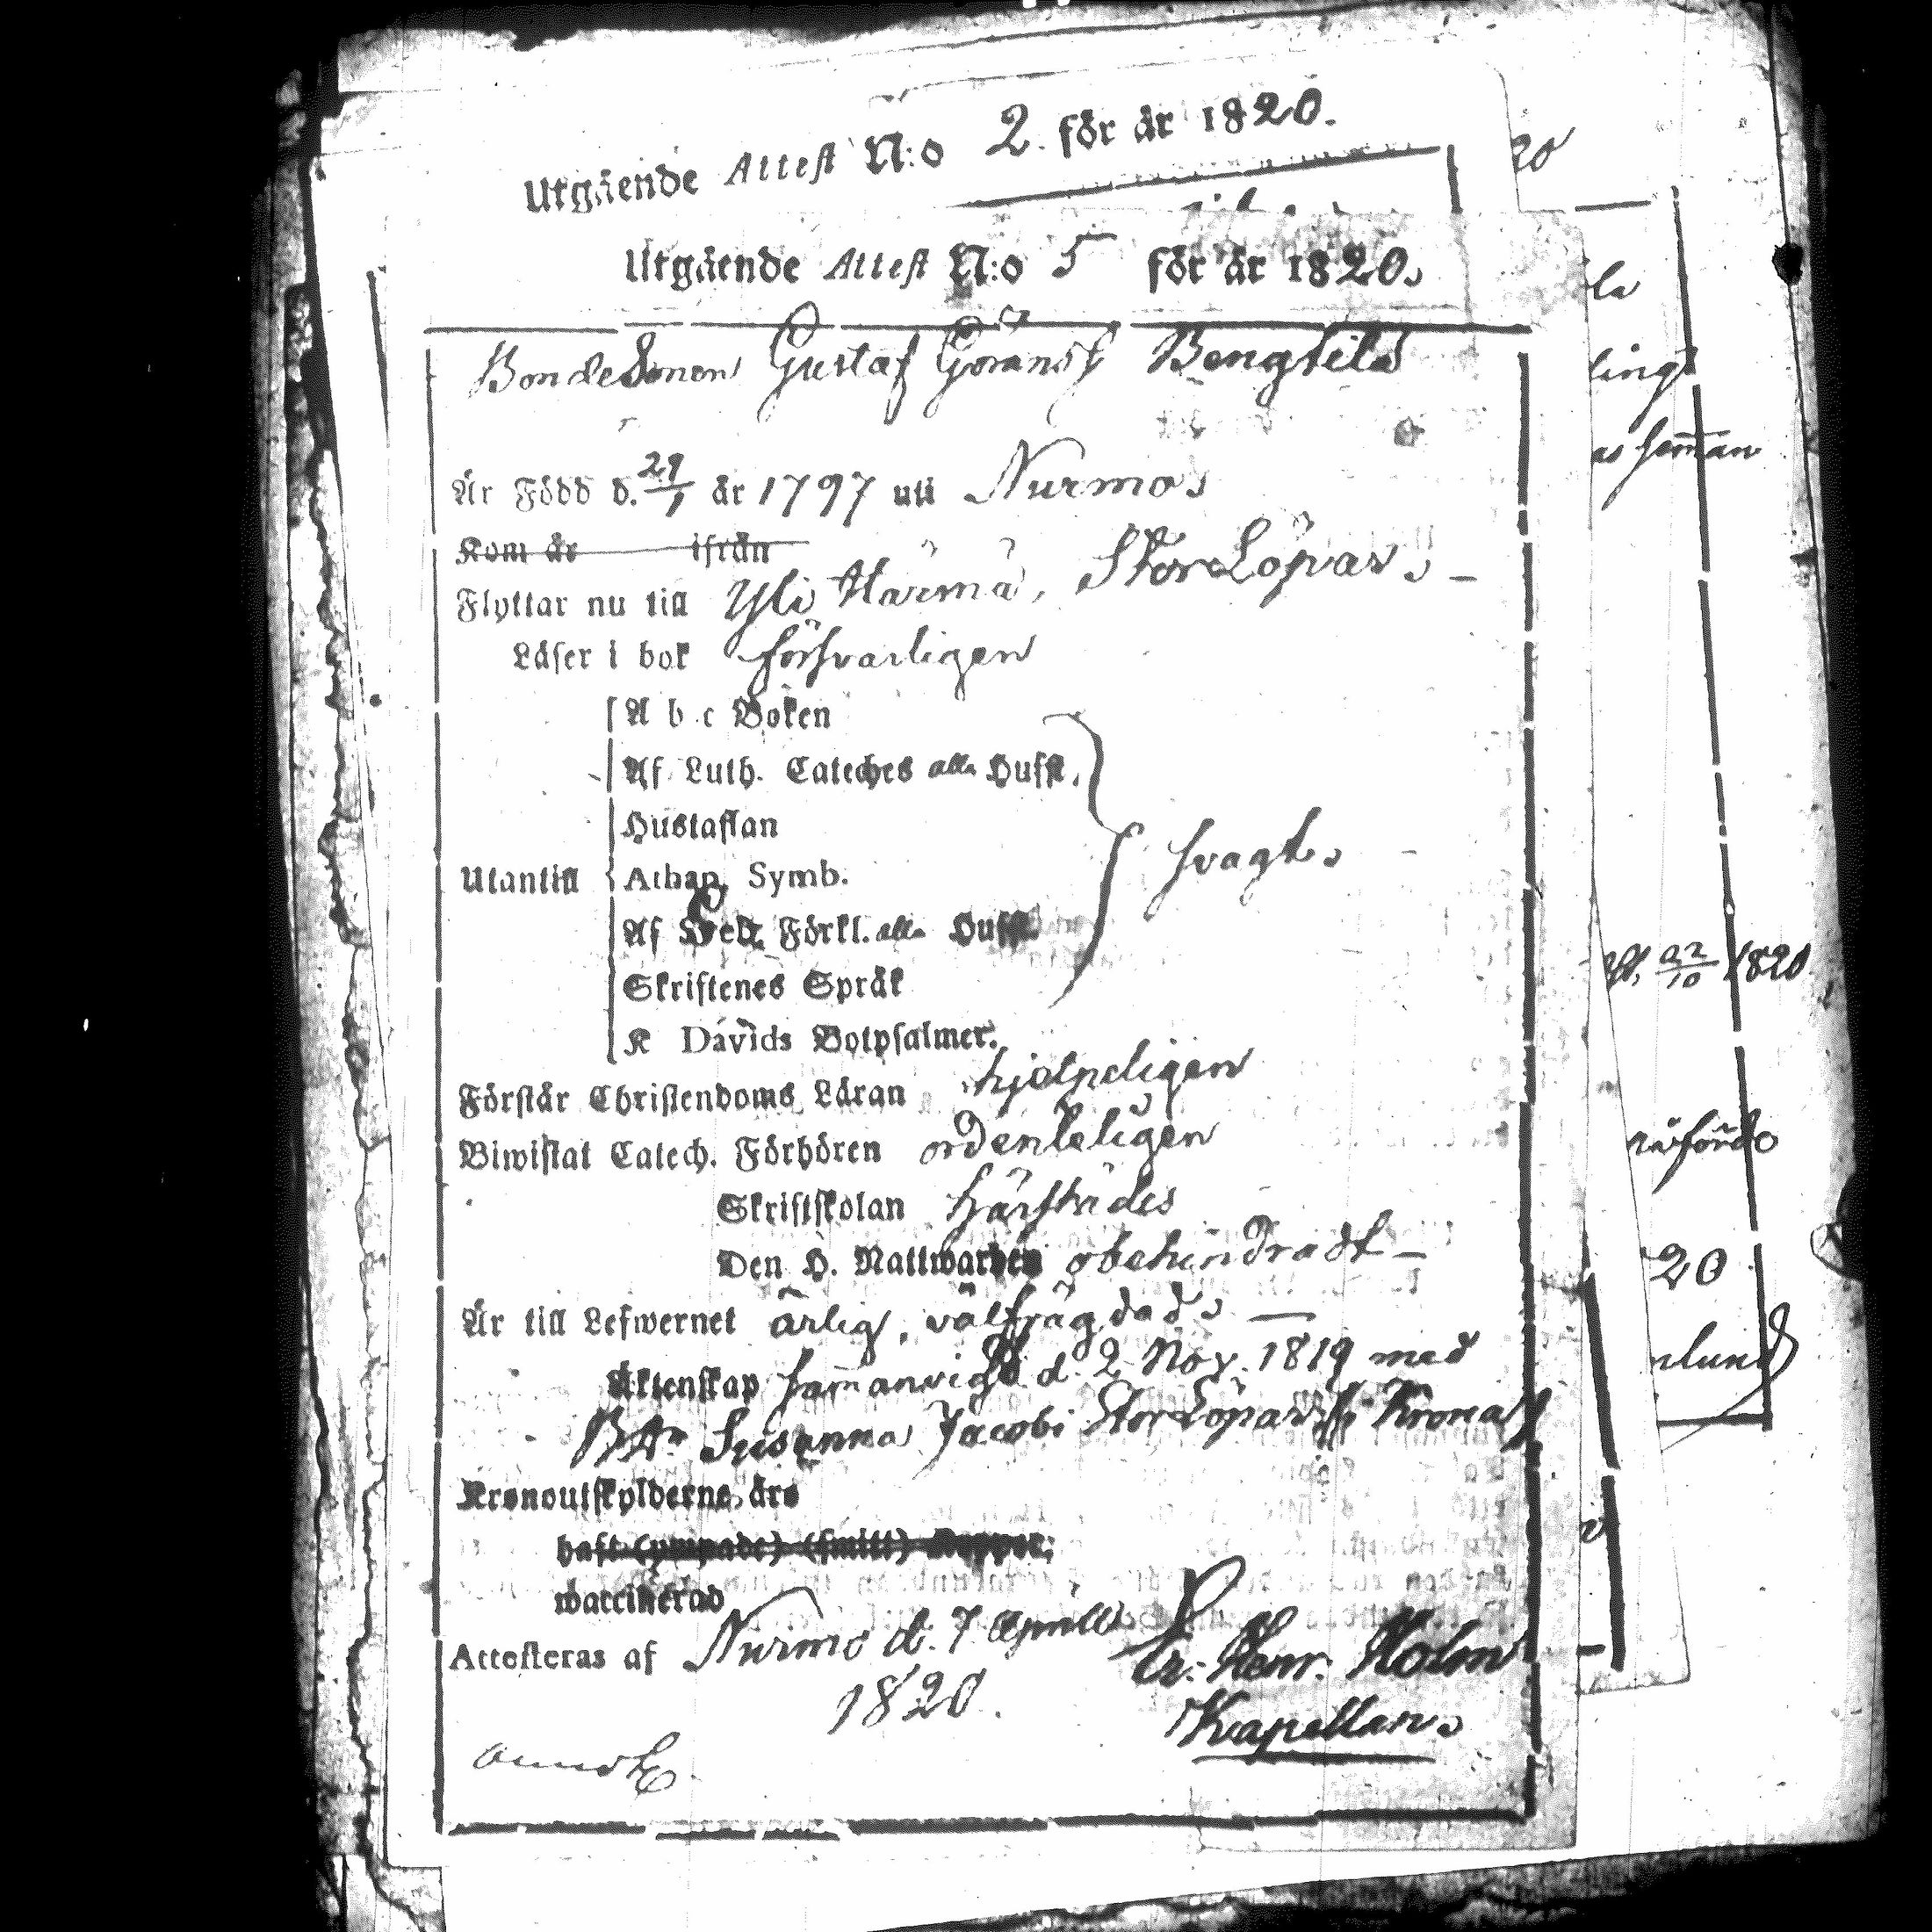 Utgående Attest N:o 2. för år 1820.
Utgående Attest N:o 5 för år 1820.
BondeSonen Gustaf Göransf Bengtila
Är Född d. 29/1 år 1797 uti Nurmo
Kom år ifrån
Flyttar nu till Yli Härmä, StorLöpas. –
Läser i bok försvarligen
A b c Boken
Af Luth. Cateches alla Hufst.
Hustaflan
Utantill Athan. Symb. svagt.
Af Förkl. alla Hufst.
Skriftenes Språk
K Davids Botpsalmer.
Förstår Christendoms Läran hjelpeligen
Biwistat Catech. Förhören ordenteligen
Skriftskolan härstädes
Den H. Nattwarden obehindradt –
Är till Lefwernet ärlig, välfrägdad. —
Äktenskap samanvigd d. 2 Nov. 1819 med
Susanna Jacobi StorLöpas
Kronoutskylderne, års
haft (ympade) (smitt) Koppor;
waccinerad
Attesteras af Nurmo d. 7 Aprill
1820.
Er. Henr. Holm
Kapellan.
20
la
ling
as samman
22/10 1820
20
nlund